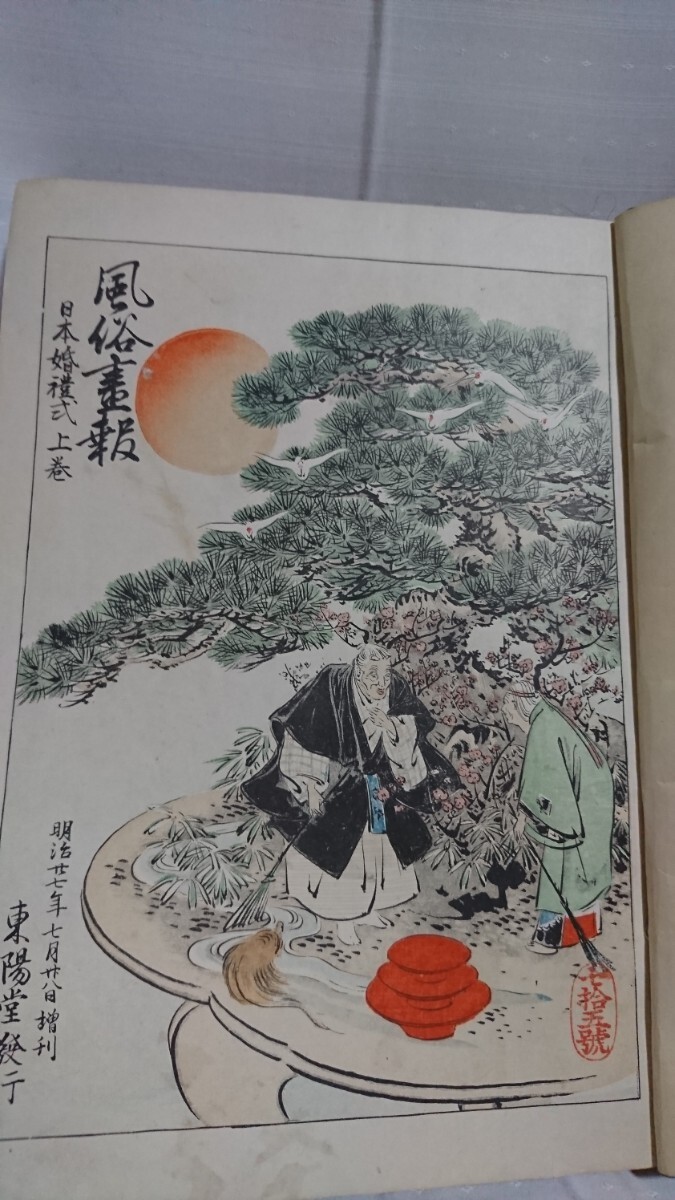 風俗畫報
日本婚禮式 上巻
明治廿七年七月廿八日增刊
東陽堂發行
七拾五號